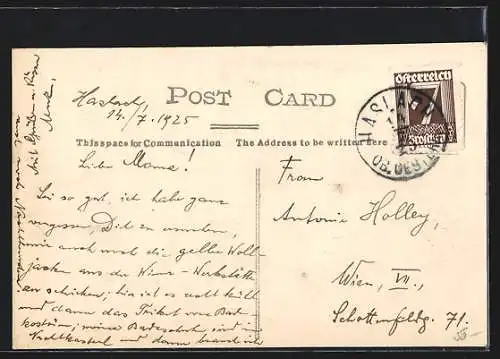 Haslach,
14./7. 1925
POST CARD
This space for Communication
The Address to be written here
Österreich
7
Groschen
HASLACH
OB. OESTERR.
Liebe Mama!
Sei so gut, ich habe ganz
vergessen, Dich zu
mir auch noch die gelbe Woll-
jacke aus der Wiener-Werkstätte
zu schicken; hier ist es recht kühl
und dann das Trikot vom Bade-
kostüm; meine Badeschuhe sind im
Nachtkastel und dann brauch ich
Mit Grüßen u. Küssen
Frau
Antonie Holley,
Wien, VII.,
Schottenfeldg. 71.